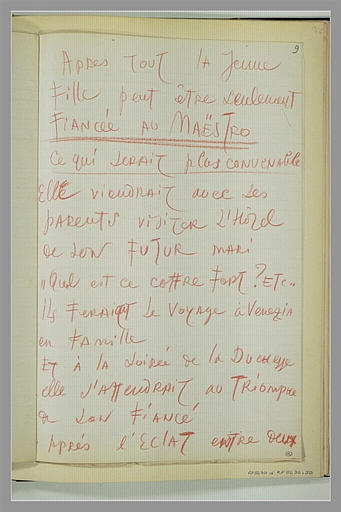 9
Apres tout la jeune
Fille peut être seulement
Fiancée au Maëstro
Ce qui serait plus convenable
Elle viendrait avec ses
parents visiter l'Hôtel
de son futur mari
"Quel est ce coffre fort? Etc"
Ils feraient le voyage à Venezia
en famille
Et à la soirée de la Duchesse
elle s'attendrait au Triomphe
de son Fiancé
Après l'Eclat entre deux